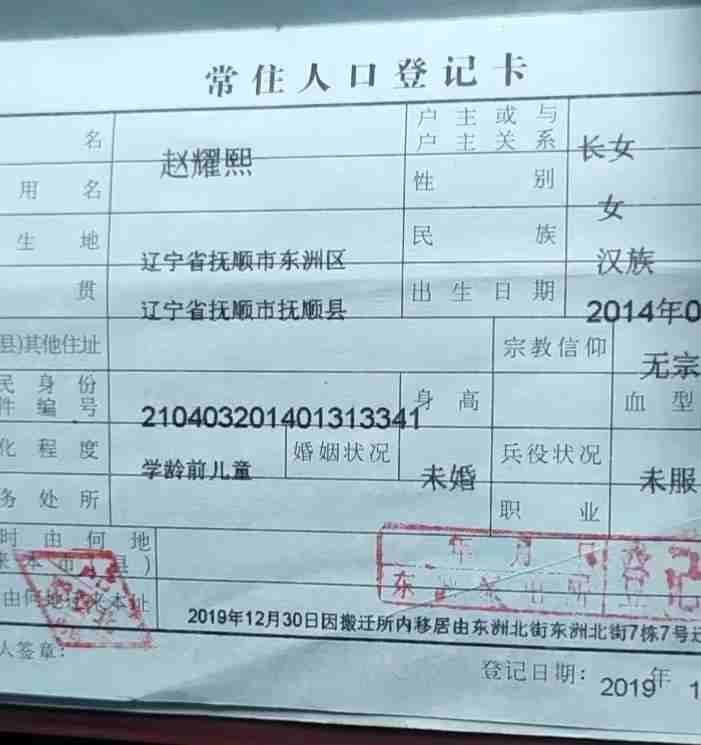 常住人口登记卡
名 赵耀熙 户主或与户主关系 长女
用名 性别 女
生地 辽宁省抚顺市东洲区 民族 汉族
贯 辽宁省抚顺市抚顺县 出生日期 2014年0
县)其他住址 宗教信仰 无宗
民身份件编号 210403201401313341 身高 血型
化程度 学龄前儿童 婚姻状况 未婚 兵役状况 未服
务处所 职业
时由何地来本市(县)
由何地迁来本址 2019年12月30日因搬迁所内移居由东洲北街东洲北街7栋7号迁
人签章: 登记日期: 2019年1